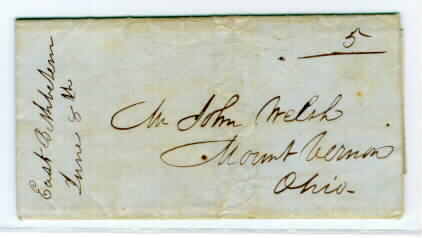 5
East Bethlehem
June 8th
Mr John Welsh
Mount Vernon
Ohio.